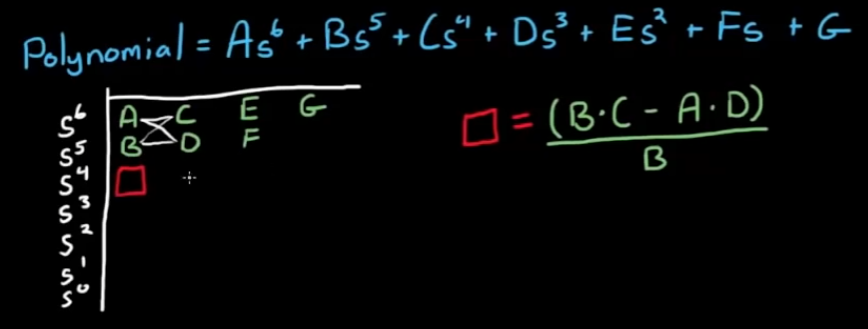 Polynomial = As⁶ + Bs⁵ + Cs⁴ + Ds³ + Es² + Fs + G
S⁶ A C E G
S⁵ B D F
S⁴ □
S³
S²
S¹
S⁰
□ = (B·C - A·D)
B